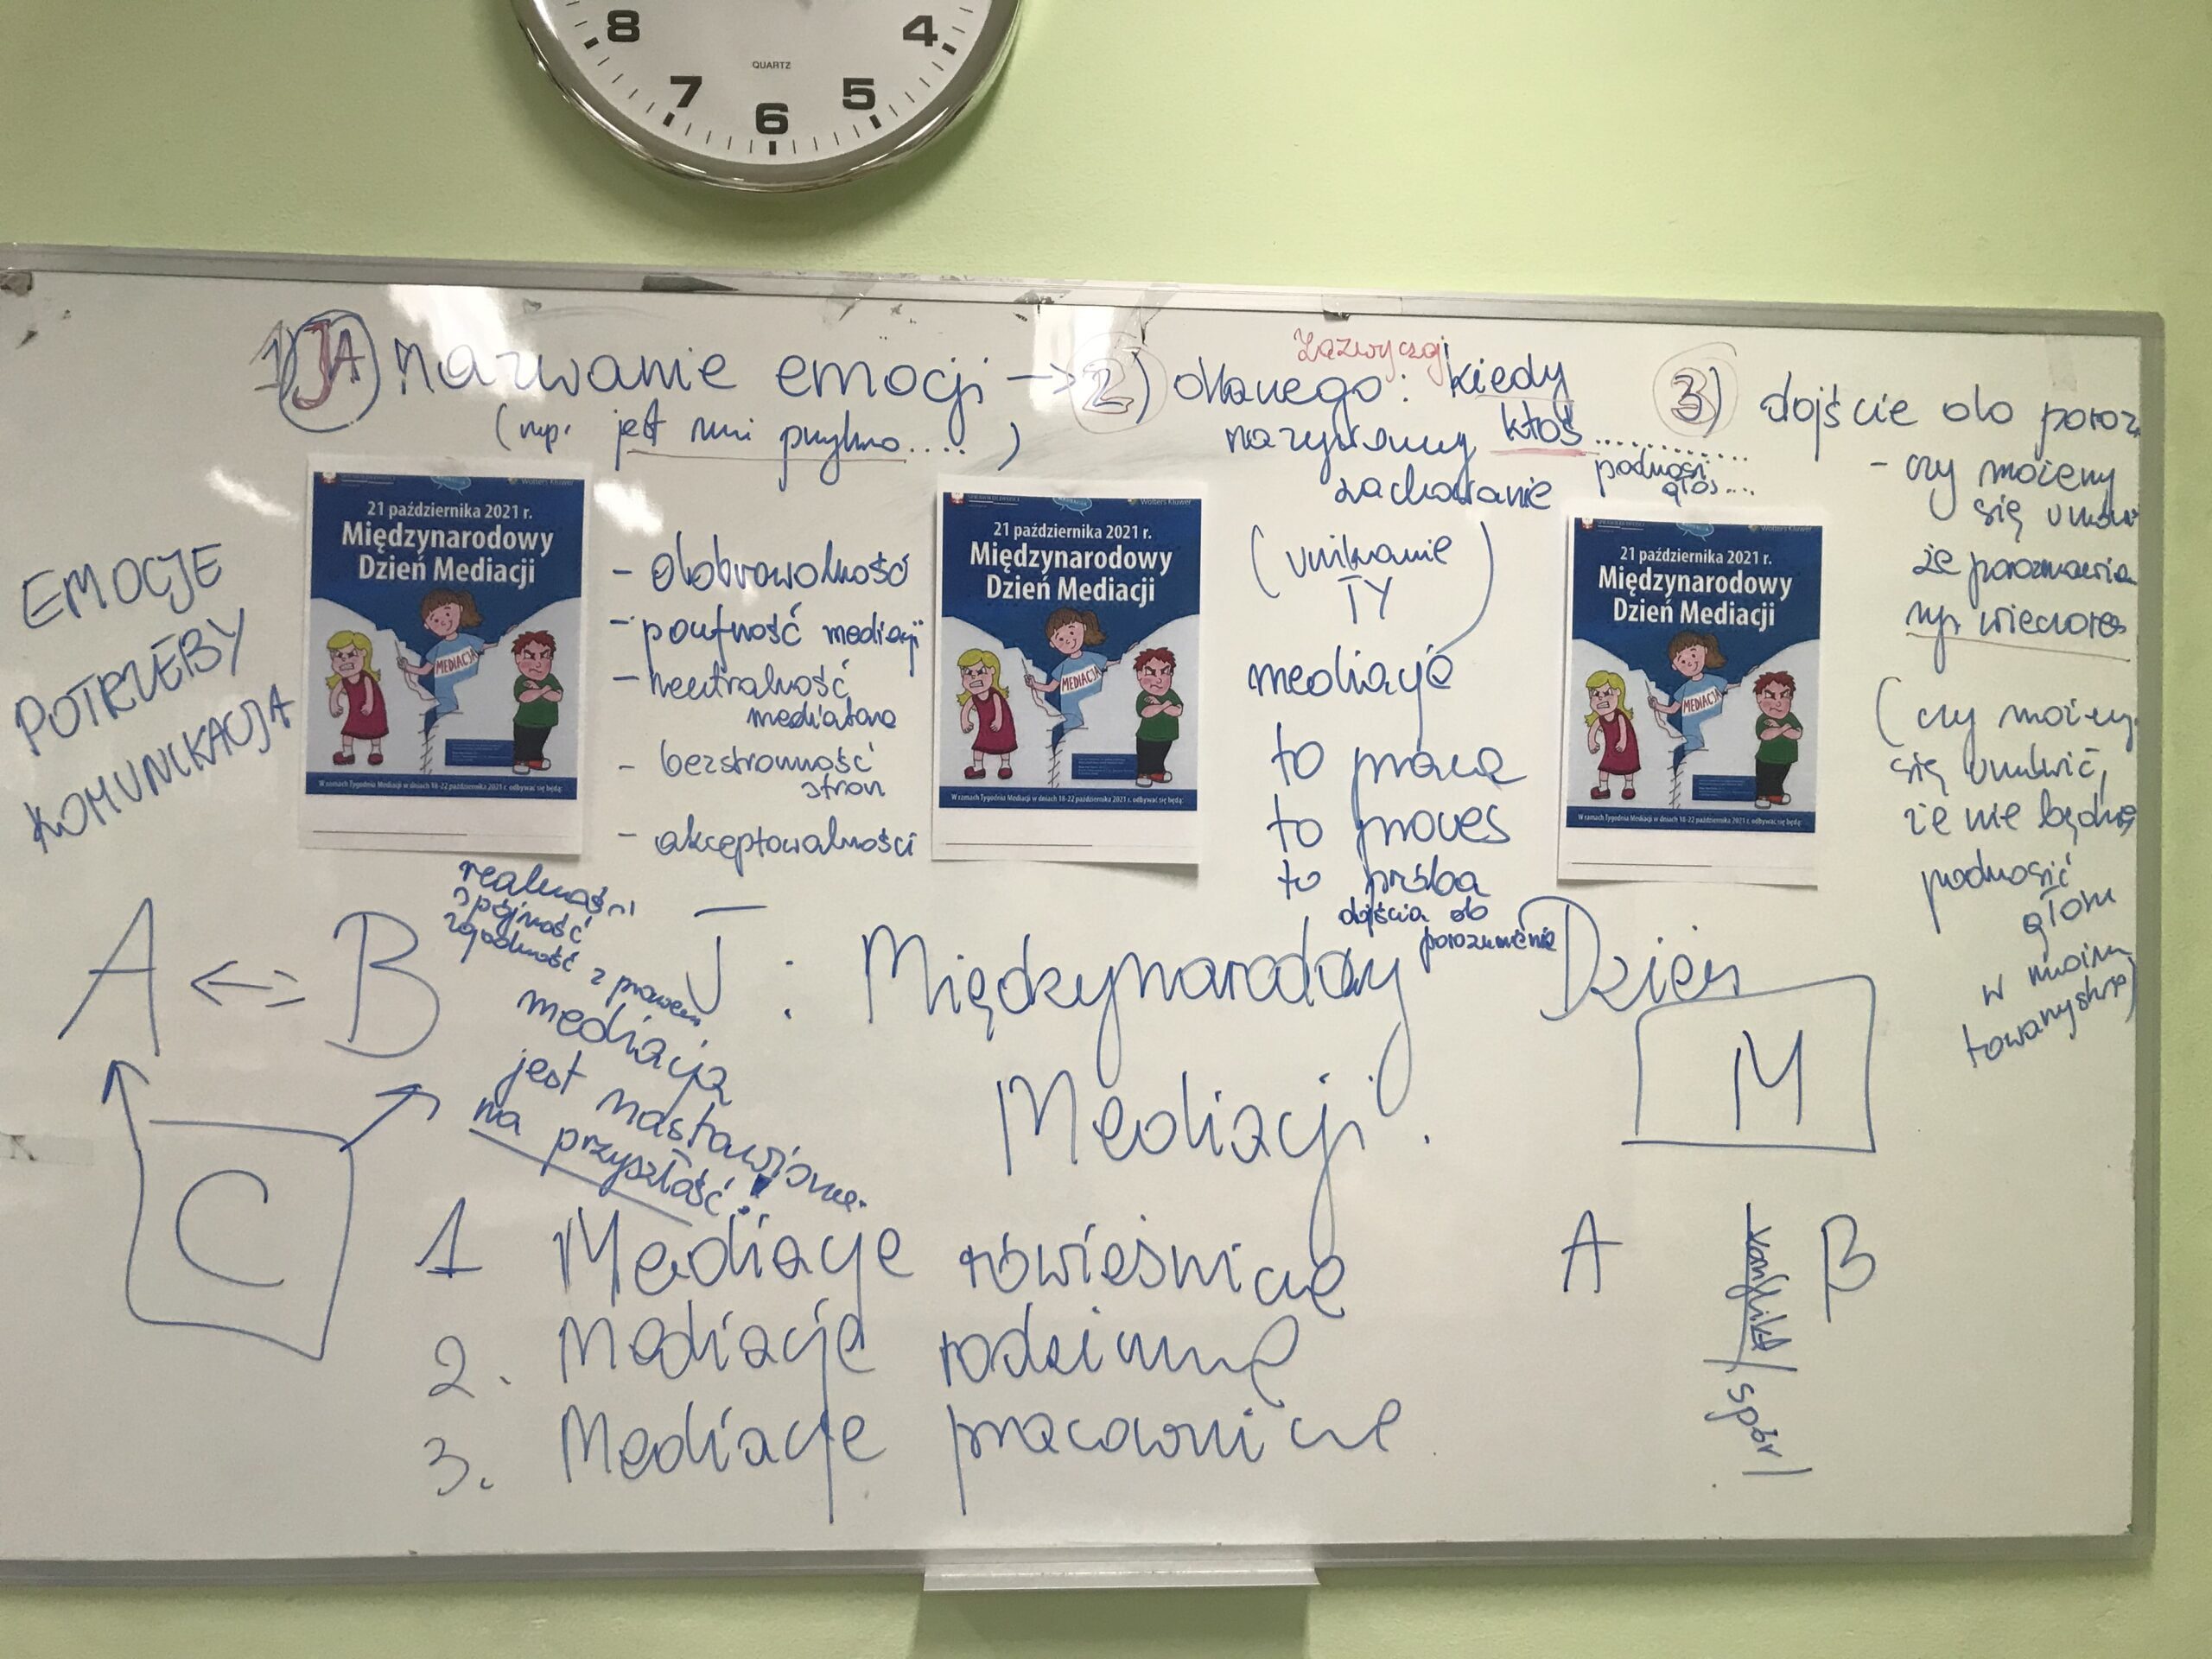 8
7
6
5
4
QUARTZ
1) JA nazwanie emocji → 2) dlanego: kiedy
Zazwyczaj
(np. jest mi przykro.....)
nazywamy ktoś ............
zachowanie
podnosi
głos...
(unikanie
TY)
3) dojście do poroz
- czy możemy
się umów
że porozmawia
np. wieczore
(czy możemy
się umówić,
że nie będzie
podnosić
głosu
w moim
towarzystwie)
EMOCJE
POTRZEBY
KOMUNIKACJA
Wolters Kluwer
21 października 2021 r.
Międzynarodowy
Dzień Mediacji
MEDIACJA
W ramach Tygodnia Mediacji w dniach 18-22 października 2021 r. odbywać się będą:
- dobrowolność
- poufność mediacji
- neutralność
mediatora
- bezstronność
stron
- akceptowalności
Wolters Kluwer
21 października 2021 r.
Międzynarodowy
Dzień Mediacji
MEDIACJA
W ramach Tygodnia Mediacji w dniach 18-22 października 2021 r. odbywać się będą:
mediacje
to praca
to proces
to próba
dojścia do
porozumienia
Wolters Kluwer
21 października 2021 r.
Międzynarodowy
Dzień Mediacji
MEDIACJA
W ramach Tygodnia Mediacji w dniach 18-22 października 2021 r. odbywać się będą:
A <=> B
C
realności
spójność
zgodność z prawem
mediacja
jest nastawiona
na przyszłość!
T: Międzynarodowy Dzień
Mediacji.
1 Mediacje rówieśnicze
2. Mediacje rodzinne
3. Mediacje pracownicze
M
A
konflikt
spór
B